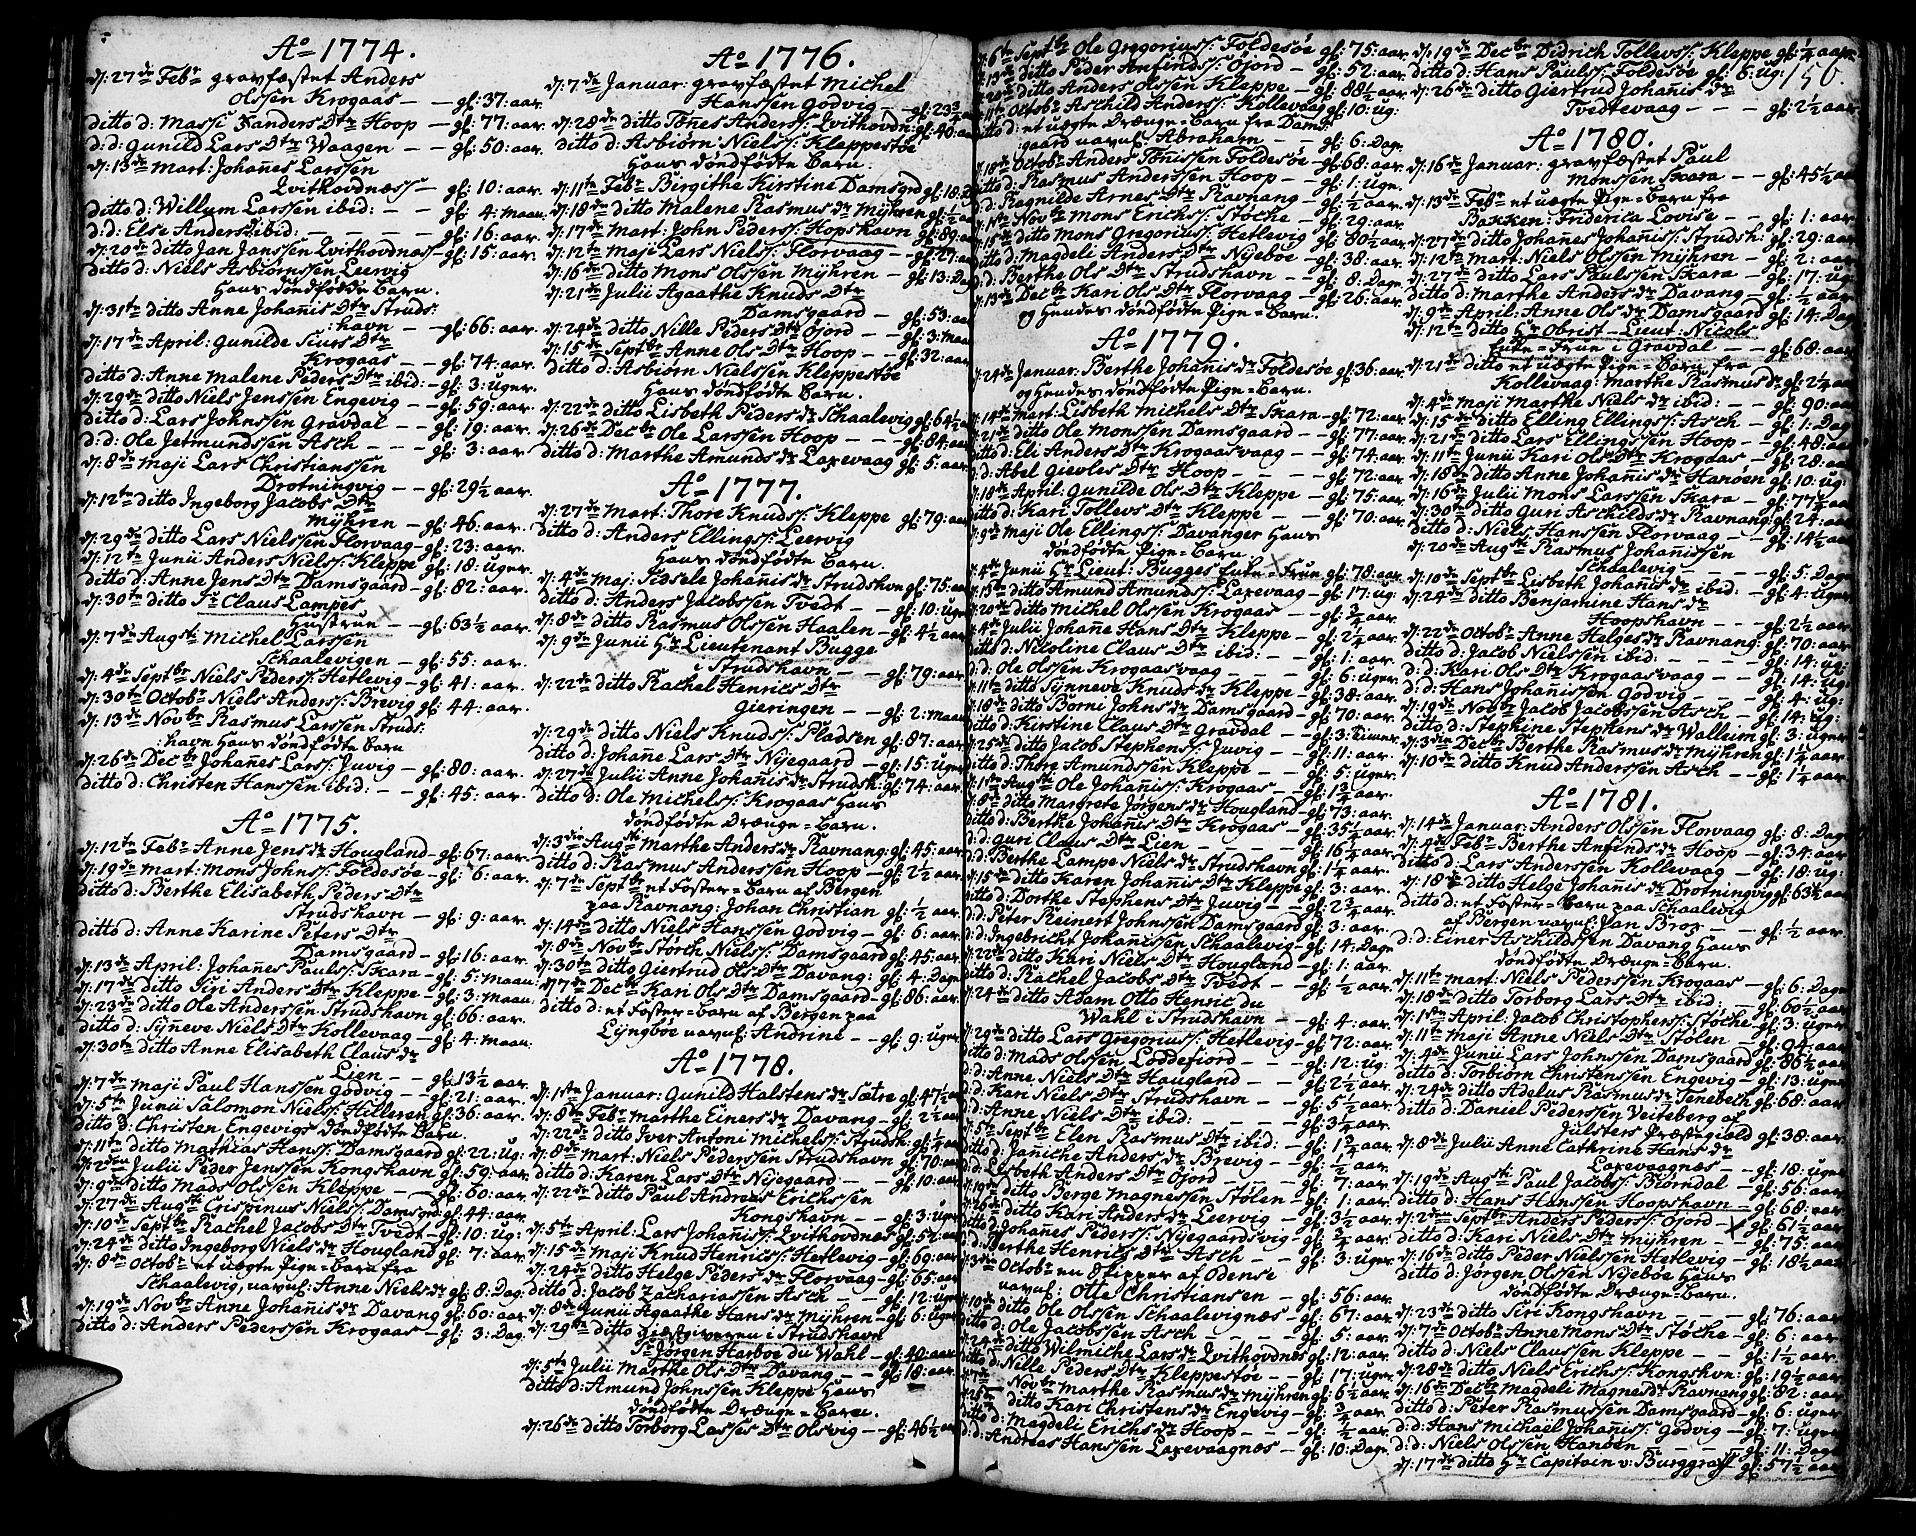 Aº 1774.
d: 27de Febr gravfæstet Anders
Olssen Krogaas - - gl: 37: aar.
ditto d: Massi Sanders Dtr Hoop - gl: 77: aar.
d: d: Gunild Lars Dtr Waagen - gl: 50: aar.
d: 13de Mart: Johañes Larssen
Qvithovdnæss - gl: 10: aar.
ditto d: Willum Larssen ibid: - - gl: 4: maan.
d: d: Else Anders: ibid: - - - - gl: 16: aar.
d: 20de ditto Jan Janssen Qvithovdnæs - gl: 15: aar.
ditto d: Niels Asbiørnssen Leervig
Hans dødfødte Barn.
d: 31te ditto Anne Johañis Dtr Struds:
:havn - gl: 66: aar.
d: 17de April: Gunilde Siurs Dtr
Krogaas - - gl: 74: aar.
ditto d: Anne Malene Peders Dtr ibid: - gl: 3: uger.
d: 29de ditto Niels Jenssen Engevig - gl: 59: aar.
ditto d: Lars Johnssen Gravdal - - gl: 19: aar.
d: d: Ole Jetmundssen Asch - - - gl: 3: aar.
d: 8de Maji Lars Christianssen
Drotningvig - - gl: 29½ aar.
d: 12te ditto Ingeborg Jacobs Dtr
Mÿhren - gl: 46: aar.
d: 29de ditto Lars Nielssen Florvaag - gl: 23: aar.
d: 12te Junii Anders Niels/: Kleppe gl: 18: uger.
ditto d: Anne Jens Dtr Damsgaard - gl: 82: aar.
d: 30te ditto Sr Claus Lampes
Hustrue - - gl: 63½ aar.
d: 7de Augsti Michel Larssen
Schaalevigen - gl: 55: aar.
d: 4de Septbr Niels Peders/: Hetlevig - gl: 41: aar.
d: 30te Octobr Niels Anders/: Brevig gl: 44: aar.
d: 13de Novbr Rasmus Larssen Struds:
:havn Hans dødfødte Barn
d: 26de Decbr Johañes Lars/: Juvig - gl: 80: aar.
ditto d: Christen Hanssen ibid: - - gl: 45: aar.
Aº 1775.
d: 12te Febr Anne Jens dr Hougland - gl: 67: aar.
d: 19de Mart: Mons Johns/: Foldesøe - gl: 6: aar.
ditto d: Berthe Elisabeth Peders Dtr
Strudshavn - gl: 9: aar.
ditto d: Anne Karine Peters Dtr
Damsgaard - gl: 16: aar.
d: 13de April: Johañes Pauls/: Skara - gl: 5: Maan.
d: 17de ditto Siri Anders Dtr Kleppe - gl: 3: maan.
d: 23de ditto Ole Anderssen Strudshavn gl: 66: aar.
ditto d: Sÿneve Niels Dtr Kollevaag - gl: 4: maan.
d: 30te ditto Anne Elisabeth Claus dr
Lien - - gl: 13½ aar.
d: 7de Maji Paul Hanssen Godvig - - gl: 21: aar.
d: 5te Junii Salomon Niels/: Hilleren gl: 36: aar.
ditto d: Christen Engevigs dødfødte Barn.
d: 11te ditto Mathias Hans/: Damsgaard gl: 22: ug:
d: 2den Julii Peder Jenssen Kongshavn gl: 59: aar.
d: 9de ditto Mads Olssen Kleppe - - gl: 60: aar.
d: 27de Augsti Crispinus Niels/: Damsgrd: gl: 44: aar.
d: 10de Septbr Rachel Jacobs Dtr Tvedt - gl: 10: ug:
d: 24de ditto Ingeborg Niels dr Hougland gl: 7: aar.
d: 8de Octobr et uægte Pige-Barn fra
Schaalevig, navnl: Anne Niels dr gl: 8: Dag.
d: 19de Novbr Anne Johañis dr Davang gl: 60: aar.
ditto d: Anders Pederssen Krogaas - gl: 3: Dag.
Aº 1776.
d: 7de Januar: gravfæstet Michel
Hanssen Godvig - - gl: 23¾
d: 28de ditto Tøñes Anders/: Qvithovdn: gl: 40: aar
ditto d: Asbiørn Niels/: Kleppestøe
Hans dødfødte Barn.
d: 11te Febr Birgithe Kirstine Damsgrd gl: 18:
d: 18de ditto Malene Rasmus dr Mÿhren gl: ½ aar
d: 17de Mart: John Peders/: Hopshavn gl: 89: aar
d: 12te Maji Lars Niels/: Florvaag - gl: 27: aar
d: 16de ditto Mons Olssen Mÿhren - gl: 13: Dag
d: 21de Julii Agaathe Knuds Dtr
Damsgaard - gl: 53: aar
d: 24de ditto Nille Peders Dtr Ojord - gl: 3: maan
d: 15de Septbr Anne Ols Dtr Hoop - - gl: 32: aar
ditto d: Asbiørn Nielssen Kleppestøe
Hans dødfødte Barn.
d: 22de ditto Lisbeth Peders dr Schaalevig gl: 64½
d: 26de Decbr Ole Larssen Hoop - - gl: 84: aar
ditto d: Marthe Amunds dr Laxevaag gl: 5: aar
Aº 1777.
d: 27de Mart: Thore Knuds/: Kleppe gl: 79: aar
ditto d: Anders Ellings/: Leervig
Hans dødfødte Barn.
d: 4de Maj: Sidsele Johañis dr Strudshvn gl: 75: aar
ditto d: Anders Jacobssen Tvedt - - gl: 10: uger
d: 8de ditto Rasmus Olssen Haalen - gl: 4½ aar
d: 9de Junii Hr Lieutenant Bugge
i Strudshavn - - gl: 79: aar
d: 22de ditto Rachel Henrics Dtr
Gieringen - - gl: 2: maan
d: 29de ditto Niels Knuds/: Pladsen gl: 87: aar
ditto d: Johañe Lars Dtr Nijegaard - gl: 15: uger
d: 27de Julii Anne Johañis dr Strudsh: gl: 74: aar.
ditto d: Ole Michels/: Krogaas Hans
dødfødte Drænge-Barn.
d: 3die Augsti Marthe Anders dr Ravnang: gl: 45: aar.
ditto d: Rasmus Anderssen Hoop - gl: 2½ aar.
d: 7de Septbr et Foster-Barn af Bergen
paa Ravnang: Johan Christian gl: ½ aar
d: 14de ditto Niels Hanssen Godvig - gl: 6: aar.
d: 8de Novbr Storch Niels/: Damsgaard gl: 45: aar.
d: 30te ditto Giertrud Ols Dtr Davang: gl: 4: Dag
d: 7de Decbr Kari Ols Dtr Damsgaard - gl: 86: aar.
ditto d: et Foster-barn af Bergen paa
Lÿngbøe navnl: Andrine - - gl: 9: uger
Aº 1778.
d: 1ste Januar: Gunild Halstens dr Sætre gl: 47½ aar
d: 8de Febr Marthe Einers dr Davang - gl: 2½ aar
d: 22de ditto Iver Antoni Michels/: Strudsh: gl: ¼ aar
d: 8de Mart: Niels Pederssen Strudshavn gl: 70: aar
ditto d: Karen Lars Dtr Nijegaard - - gl: 10: aar
d: 22de ditto Paul Andreas Erichssen
Kongshavn - - gl: 3: uger
d: 5te April: Lars Johañis/: Qvithovdnæs gl: 57: aar
d: 15de Maji Knud Henrics/: Hetlevig - gl: 69: aar
d: 24de ditto Helge Peders dr Florvaag - gl: 65: aar
ditto d: Jacob Zachariassen Asch - - gl: 12: uger
d: 8de Junii Agaathe Hans dr Mÿhren - gl: 6: uger
d: 29de ditto Giestgiveren i Strudshavn
Sr Jørgen Harboe du Wahl - gl: 40: aar
d: 5te Julii Marthe Ols Dtr Davang - - gl: 18: aar.
ditto d: Amund Johnssen Kleppe Hans
dødfødte Drænge-Barn.
d: 26de ditto Torborg Lasses Dtr Olsvig - gl: 46½ aar
d: 6te Septbr Ole Gregorius/: Foldesøe gl: 75: aar.
d: 13de ditto Peder Amfinds/: Ojord - gl: 52: aar.
d: 20de ditto Anders Olssen Kleppe - gl: 80½ aar.
d: 11te Octobr Aschild Anders/: Kollevaag gl: 10: ug:
ditto d: et uægte Drænge-Barn fra Dams:
:gaard navnl: Abraham - - gl: 6: Dage.
d: 18de Octobr Anders Tøñissen Foldesøe - gl: 68: aar.
ditto d: Rasmus Anderssen Hoop - - gl: 1: uge.
d: d: Ragnilde Arnes Dtr Ravnang - gl: ½ aar.
d: 1ste Novbr Mons Erichs/: Støche - gl: 29: aar.
d: 15de ditto Mons Gregorius/: Hetlevig gl: 80½ aar.
ditto d: Magdeli Anders Dtr Nijebøe - gl: 38: aar.
d: d: Berthe Ols Dtr Strudshavn - - gl: 8: Dage.
d: 13de Decbr Kari Ols Dtr Florvaag - - gl: 26: aar.
og Hendes dødfødte Pige-Barn.
Aº 1779.
d: 24de Januar: Berthe Johañis dr Foldesøe gl: 36: aar.
og Hendes dødfødte Pige-Barn.
d: 14de Mart: Lisbeth Michels Dtr Skara - gl: 72: aar.
d: 21de ditto Ole Monssen Damsgaard - - gl: 77: aar.
ditto d: Eli Anders Dtr Krogaasvaag - - gl: 74: aar.
d: d: Abel Gievles Dtr Hoop - - - gl: 72: aar.
d: 18de April: Gunilde Ols Dtr Kleppe - gl: 75: aar.
ditto d: Kari Tollevs Dtr Kleppe - - gl: 70: aar.
d: 9de Maji Ole Ellings/: Davanger Hans
dødfødte Pige-Barn.
d: 4de Junii Hr Lieut: Bugges Enke-Frue gl: 78: aar.
d: 13de ditto Amund Amunds/: Laxevaag - gl: 17: ug:
d: 20de ditto Michel Olssen Krogaas - - gl: ¾ aar.
d: 4de Julii Johañe Hans Dtr Kleppe - gl: 2¼ aar.
ditto d: Nicoline Claus Dtr ibid: - - gl: 1: aar.
d: d: Ole Olssen Krogaasvaag - - gl: 6: uger.
d: 11te ditto Sÿnneve Knuds dr Kleppe - gl: 38: aar.
d: 18de ditto Borni Johns dr Damsgaard - gl: 70: aar.
ditto d: Kirstine Claus Dtr Gravdal - gl: 3: Timer.
d: 25de ditto Jacob Stephens/: Juvig - gl: 11: aar.
ditto d: Thore Amundssen Kleppe - - gl: 5: uger.
d: 1ste Augsti Ole Johañis/: Krogaas - gl: ¾ aar.
d: 8de ditto Margrete Jørgens dr Hougland - gl: 73: aar.
ditto d: Berthe Johañis Dtr Krogaas - gl: 35¼ aar.
d: d: Guri Claus Dtr Lien - - - - gl: 16¼ aar.
d: d: Berthe Lampe Niels dr Strudshavn gl: 1¼ aar.
d: 15de ditto Karen Johañis Dtr Kleppe gl: 3: aar.
ditto d: Dorthe Stephens Dtr Juvig - gl: 2¾ aar.
d: d: Peter Reinert Johnssen Damsgaard gl: 3: aar.
d: d: Ingebricht Johañissen Schaalevig - gl: 14: Dage.
d: 22de ditto Kari Niels Dtr Hougland - gl: 1: aar.
ditto d: Rachel Jacobs Dtr Tvedt - - gl: ½ aar.
d: 24de ditto Adam Otto Henric du
Wahl i Strudshavn - - gl: 4: aar.
d: 29de ditto Lars Gregorius/: Hetlevig - gl: 72: aar.
ditto d: Mads Olssen Loddefiord - - gl: 12: ug:
d: d: Anne Niels Dtr Hougland - - gl: 2½ aar.
d: d: Kari Niels Dtr Strudshavn - - gl: 5½ aar.
d: d: Anne Niels Dtr ibid: - - - gl: 3¼ aar.
d: 5te Septbr Elen Rasmus Dtr ibid: - gl: 1¾ aar.
ditto d: Janiche Anders dr Brevig - - gl: ½ aar.
d: d: Lisbeth Anders Dtr Ojord - - gl: 7: aar.
d: 19de ditto Børge Magnessen Stølen - gl: 1: aar.
d: 26de ditto Kari Anders dr Leervig - gl: 3½ aar.
ditto d: Johañes Peders/: Nijegaardsvig gl: ¾ aar.
d: d: Berthe Henrics Dtr Asch - - gl: 3: uger.
d: 3die Octobr en Skipper af Odense
navnl: Otte Christiansen - gl: 56: aar.
d: 10de ditto Ole Olssen Schaalevignæs - gl: 67: aar.
ditto d: Ole Jacobssen Asch - - - gl: 5: aar.
d: 24de ditto Wilmiche Lars dr Qvithovdnæs gl: 12: aar.
ditto d: Nille Peders Dtr Kleppestøe - - gl: 17: uger.
d: 7de Novbr Marthe Rasmus dr Mÿhren gl: 6½ aar.
d: 25de ditto Kari Christens dr Engevig - gl: ¾ aar.
ditto d: Magdeli Erichs dr Hoop - - gl: 4: aar.
d: d: Andreas Hanssen Laxevaagnæs - - gl: 10: Dage.
d: 19de Decbr Didrich Tollevs/: Kleppe gl: ¼ aar.
ditto d: Hans Pauls/: Foldesøe gl: 6: ug: 156.
d: 26de ditto Giertrud Johañis dr
Tvedtevaag - - gl: 2½ aar.
Aº 1780.
d: 16de Januar: gravfæstet Paul
Monssen Skara - - gl: 45½ aar
d: 13de Febr et uægte Pige-Barn fra
Bakken: Friderica Lovise - - gl: 1: aar.
d: 27de ditto Johañes Johañis/: Strudsh: gl: 29: aar.
d: 12te Mart: Niels Olssen Mÿhren - gl: 2: aar.
d: 27de ditto Lars Paulssen Skara - - gl: 17: ug:
ditto d: Marthe Anders dr Davang - gl: ½ aar.
d: 9de April: Anne Ols dr Damsgaard gl: 14: Dag
d: 12te ditto Hr Obrist-Lieut: Nicols
Enke-Frue i Gravdal - - gl: 68: aar
d: 21de ditto et uægte Pige-Barn fra
Kollevaag: Marthe Rasmus dr gl: 2¼ aar
d: 4de Maji Marthe Niels dr ibid: - - gl: 90: aar.
d: 15de ditto Elling Ellings/: Asch - gl: 1: Dag
d: 21de ditto Lars Ellingssen Hoop - - gl: 48: aar.
d: 11te Junii Kari Ols Dtr Krogaas - gl: 28: aar
d: 18de ditto Anne Johañis dr Hanøen gl: 10: ug:
d: 16de Julii Mons Larssen Skara - - gl: 77½ aar
d: 30te ditto Guri Aschilds dr Ravnang gl: 24: aar.
ditto d: Niels Hanssen Florvaag - - gl: 14½ aar
d: 20de Augsti Rasmus Johañissen
Schaalevig - - - gl: 5: Dage
d: 10de Septbr Lisbeth Johañis dr ibid: - gl: 4: uger
d: 24de ditto Benjamine Hans dr
Hoopshavn - - - gl: 2½ aar
d: 22de Octobr Anne Helges dr Ravnang: gl: 70: aar.
ditto d: Jacob Nielssen ibid: - - - gl: 14: ug:
d: d: Kari Ols Dtr Krogaasvaag - - gl: 14: ug:
d: d: Hans Johañissen Godvig - - gl: 4: ug:
d: 19de Novbr Jacob Jacobssen Asch - - gl: 14: ug:
ditto d: Stephine Stephens dr Wallem gl: 3: uger
d: 3die Decbr Berthe Rasmus dr Mÿhren gl: 1¼ aar.
d: 10de ditto Knud Anderssen Asch - - gl: 1¼ aar.
Aº 1781.
d: 14de Januar: Anders Olssen Florvaag gl: 8: Dage
d: 4de Febr Berthe Amfinds dr Hoop - gl: 34: aar.
ditto d: Lars Anderssen Kollevaag - gl: 18: ug:
d: 18de ditto Helge Johañis dr Drotningvig gl: 63½ aar
ditto d: et Foster-Barn paa Schaalevig
af Bergen navnl: Jan Brox - - gl: ½ aar.
d: d: Einer Aschildssen Davang Hans
dødfødte Drænge-Barn.
d: 11te Mart: Niels Pederssen Krogaas - gl: 6: Dage
d: 18de ditto Torborg Lars Dtr ibid: - - gl: 60½ aar.
d: 1ste April: Jacob Christophers/: Støche gl: 3: uger
d: 11te Maji Anne Niels Dtr Stølen - - gl: 94: aar.
d: 4de Junii Lars Johnssen Damsgaard gl: 86½ aar.
ditto d: Torbiørn Christenssen Engevig - gl: 13: uger
d: 24de ditto Adelus Rasmus dr Tenebech gl: 68: aar.
ditto d: Daniel Pederssen Veiteberg af
Jülsters Præstegield gl: 38: aar.
d: 8de Julii Anne Cathrine Hans dr
Laxevaagnæs - - gl: 18: uger
d: 19de Augsti Paul Jacobs/: Biørndal - gl: 56: aar.
ditto d: Hans Hanssen Hoopshavn - gl: 68: aar.
d: 2den Septbr Anders Peders/: Ojord - gl: 61½ aar.
ditto d: Kari Niels Dtr Mÿhren - - gl: 75: aar.
d: 16de ditto Peder Nielssen Hetlevig - gl: 18½ aar.
ditto d: Jørgen Olssen Nijebøe Hans
dødfødte Drænge-Barn.
d: 23de ditto Siri Kongshavn - - - gl: 76: aar.
d: 7de Octobr Anne Mons Dtr Støche - - gl: 6: aar.
ditto d: Niels Claussen Kleppe - - - gl: 1½ aar.
d: 28de ditto Niels Erichs/: Kongshvn: gl: 19½ aar
d: 16de Decbr Magdeli Magnes Dtr Ravnang gl: 82: aar.
ditto d: Peter Rasmussen Damsgaard - gl: 6: uger
d: d: Hans Michaël Johañis/: Godvig - gl: 7: uger
d: d: Niels Olssen Hanøen - - - - gl: 11: Dage
d: 17de ditto Hr Capitain v: Burggraff gl: 57½ aar